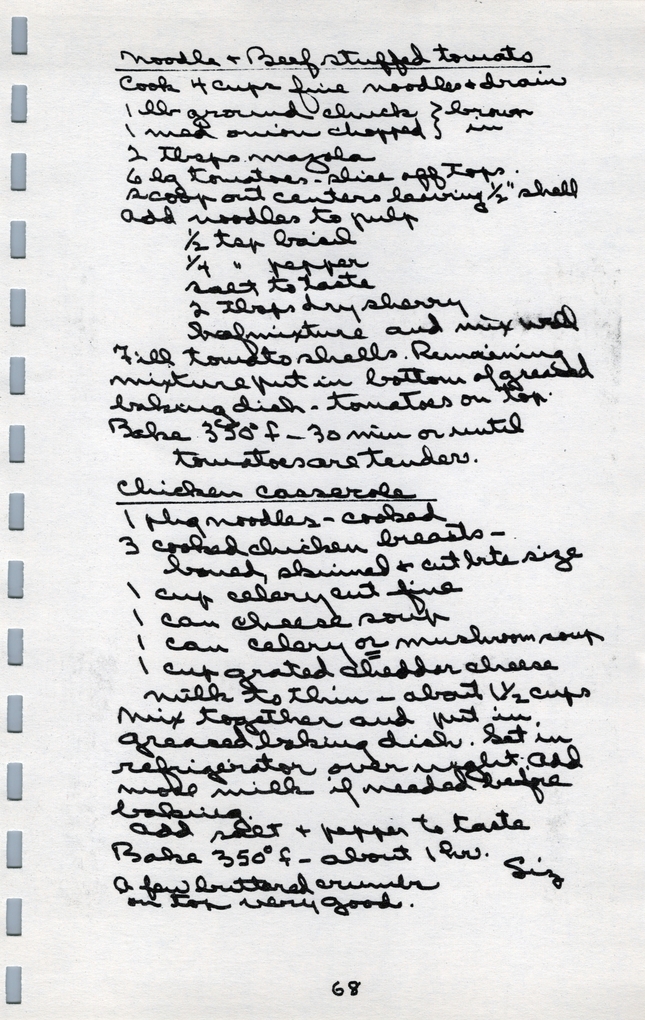 Noodle + Beef stuffed tomato
Cook 4 cups fine noodles + drain
1 lb ground chuck } brown
1 med onion chopped } in
2 tbsps mazola
6 lg tomatoes - slice off tops.
scoop out centers leaving 1/2" shell
add noodles to pulp
1/2 tsp basil
1/4 " pepper
salt to taste
2 tbsps dry sherry
beef mixture and mix well
Fill tomato shells. Remaining
mixture put in bottom of greased
baking dish - tomatoes on top.
Bake 350° f - 30 min or until
tomatoes are tender.
Chicken casserole
1 pkg noodles - cooked
3 cooked chicken breasts -
boned, skinned + cut bite size
1 cup celery cut fine
1 can cheese soup
1 can celery or mushroom soup
1 cup grated cheddar cheese
milk to thin - about 1 1/2 cups
Mix together and put in
greased baking dish. Set in
refrigerator over night. Add
more milk if needed before
baking.
add salt + pepper to taste
Bake 350° f - about 1 hr.
Siz
A few buttered crumbs
on top very good.
68